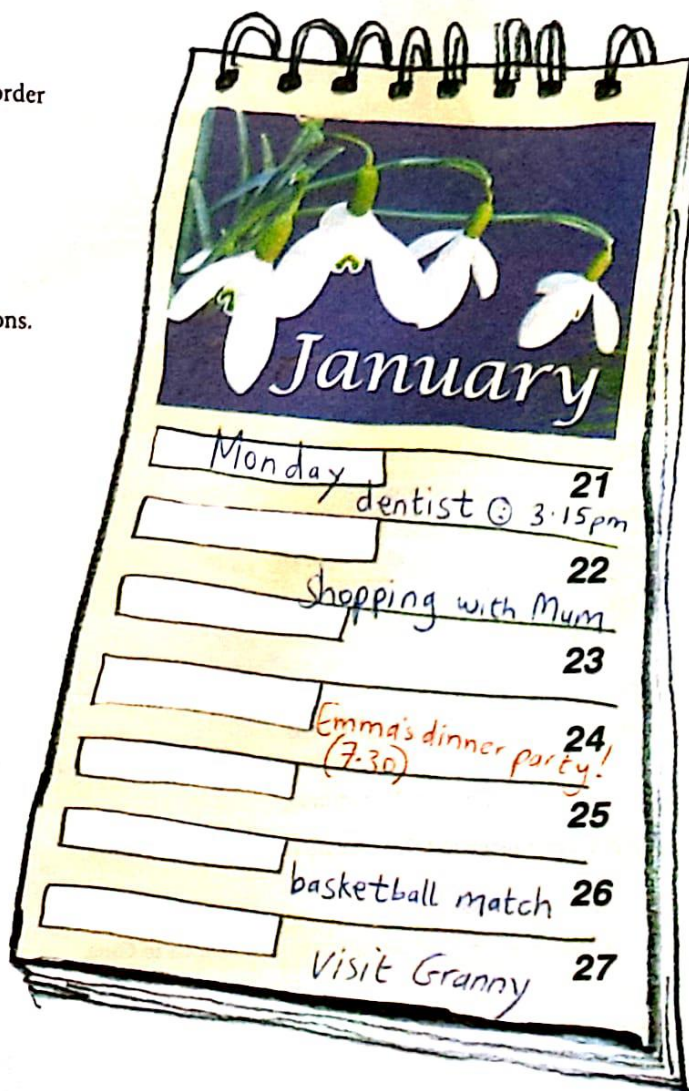 order
ons.
January
Monday
21
dentist @ 3.15pm
22
Shopping with Mum
23
24
Emma's dinner party!
(7.30)
25
basketball match 26
Visit Granny 27